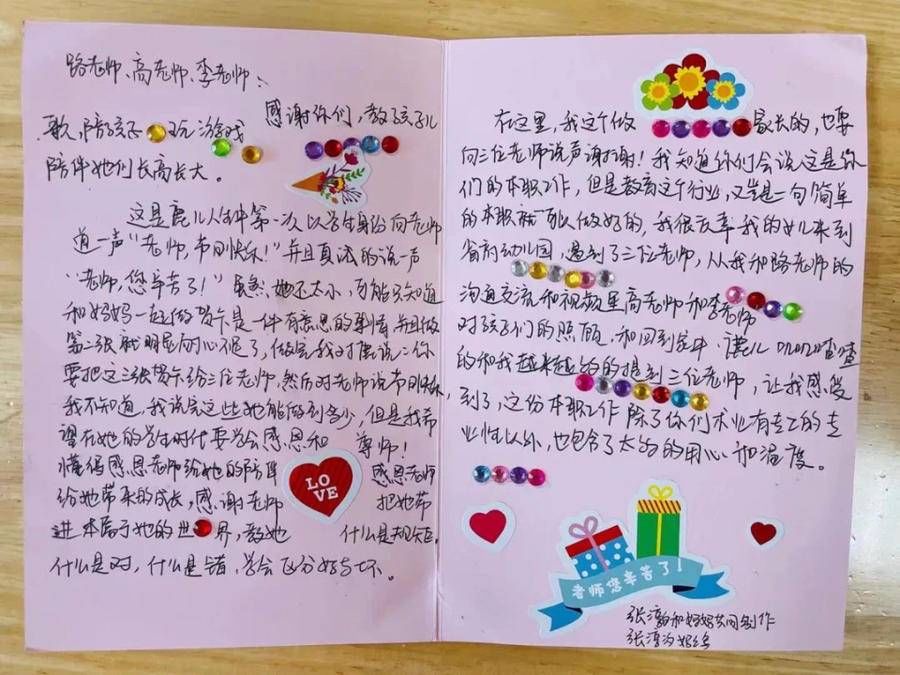 路老师、高老师、李老师：
感谢你们，教孩子儿
歌，陪孩子玩游戏
陪伴她们长高长大。
这是鹿儿人生中第一次以学生身份向老师
道一声“老师，节日快乐！”并且真诚的说一声
“老师，您辛苦了！”虽然她还太小，可能只知道
和妈妈一起做贺卡是一件有意思的事情并且做
第二张就明显耐心不足了，做完我对鹿说：你
要把这三张贺卡给三位老师，然后对老师说节日快乐，
我不知道，我说完这些她能做到多少，但是我希
望在她的学生时代要学会感恩和尊师！
懂得感恩老师给她的陪伴 感恩老师
给她带来的成长，感谢老师 把她带
进本属于她的世界，教她 什么是规矩
什么是对，什么是错，学会区分好与坏。
在这里，我这个做家长的，也要
向三位老师说声谢谢！我知道你们会说这是你
们的本职工作，但是教育这个行业，又岂是一句简单
的本职就可以做好的，我很庆幸我的女儿来到
省府幼儿园，遇到了三位老师，从我和路老师的
沟通交流和视频里高老师和李老师
对孩子们的照顾，和回到家中，鹿儿叽叽喳喳
的和我越来越多的提到三位老师，让我感受
到了，这份本职工作除了你们术业有专工的专
业性以外，也包含了太多的用心和温度。
LOVE
老师您辛苦了！
张淳和妈妈共同制作
张淳